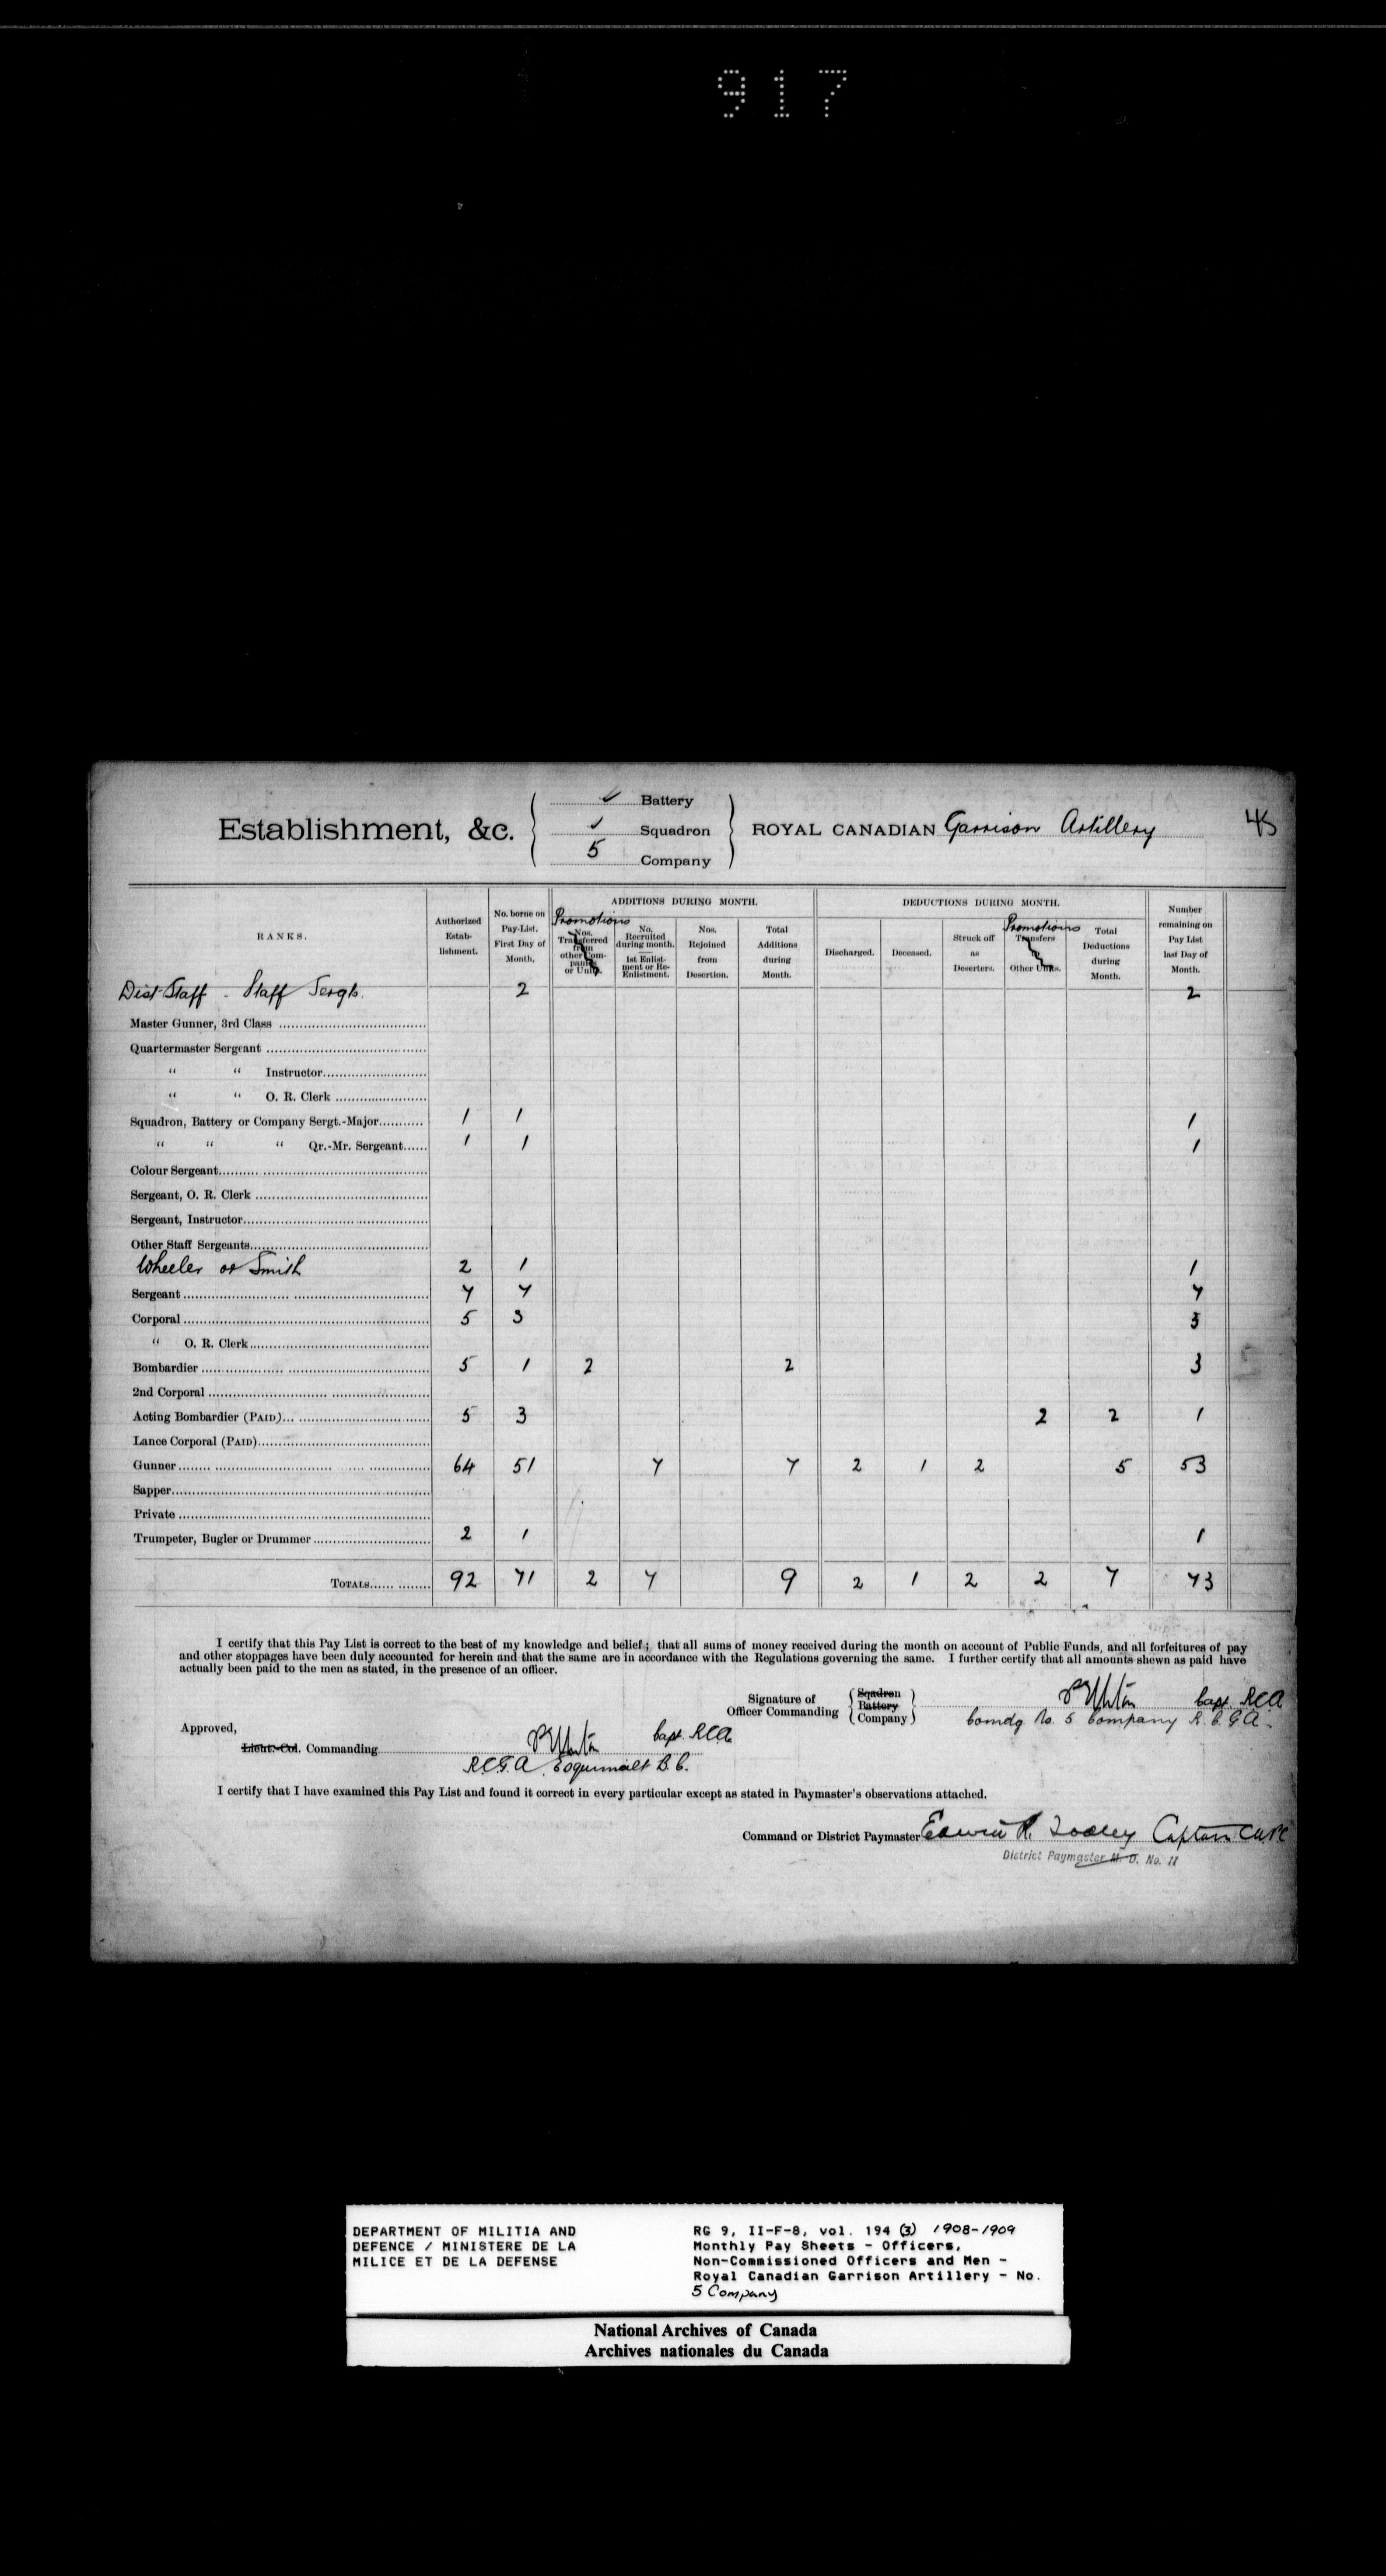 917
Battery
Establishment, &c. Squadron ROYAL CANADIAN Garrison Artillery 45
5 Company
RANKS. Authorized Establishment. No. borne on Pay-List. First Day of Month. ADDITIONS DURING MONTH. DEDUCTIONS DURING MONTH. Number remaining on Pay List last Day of Month.
Promotions Nos. Transferred from other Companies or Units. No. Recruited during month. 1st Enlistment or Re-Enlistment. Nos. Rejoined from Desertion. Total Additions during Month. Discharged. Deceased. Struck off as Deserters. Promotions Transfers to Other Units. Total Deductions during Month.
Dist Staff - Staff Sergts. 2 2
Master Gunner, 3rd Class
Quartermaster Sergeant
" " Instructor
" " O. R. Clerk
Squadron, Battery or Company Sergt.-Major 1 1 1
" " " Qr.-Mr. Sergeant 1 1 1
Colour Sergeant
Sergeant, O. R. Clerk
Sergeant, Instructor
Other Staff Sergeants
Wheeler or Smith 2 1 1
Sergeant 7 7 7
Corporal 5 3 3
" O. R. Clerk
Bombardier 5 1 2 2 3
2nd Corporal
Acting Bombardier (PAID) 5 3 2 2 1
Lance Corporal (PAID)
Gunner 64 51 7 7 2 1 2 5 53
Sapper
Private
Trumpeter, Bugler or Drummer 2 1 1
TOTALS 92 71 2 7 9 2 1 2 2 7 73
I certify that this Pay List is correct to the best of my knowledge and belief; that all sums of money received during the month on account of Public Funds, and all forfeitures of pay
and other stoppages have been duly accounted for herein and that the same are in accordance with the Regulations governing the same. I further certify that all amounts shewn as paid have
actually been paid to the men as stated, in the presence of an officer.
Signature of Officer Commanding Sqadron Battery Company Capt. RCA
Comdg No. 5 Company R.C.G.A.
Approved,
Lieut.-Col. Commanding Capt. RCA
R.C.G.A. Esquimalt B.C.
I certify that I have examined this Pay List and found it correct in every particular except as stated in Paymaster's observations attached.
Command or District Paymaster Edwin Captain
District Paymaster M. D. No. 11
DEPARTMENT OF MILITIA AND
DEFENCE / MINISTERE DE LA
MILICE ET DE LA DEFENSE
RG 9, II-F-8, vol. 194 (3) 1908-1909
Monthly Pay Sheets - Officers,
Non-Commissioned Officers and Men -
Royal Canadian Garrison Artillery - No.
5 Company
National Archives of Canada
Archives nationales du Canada